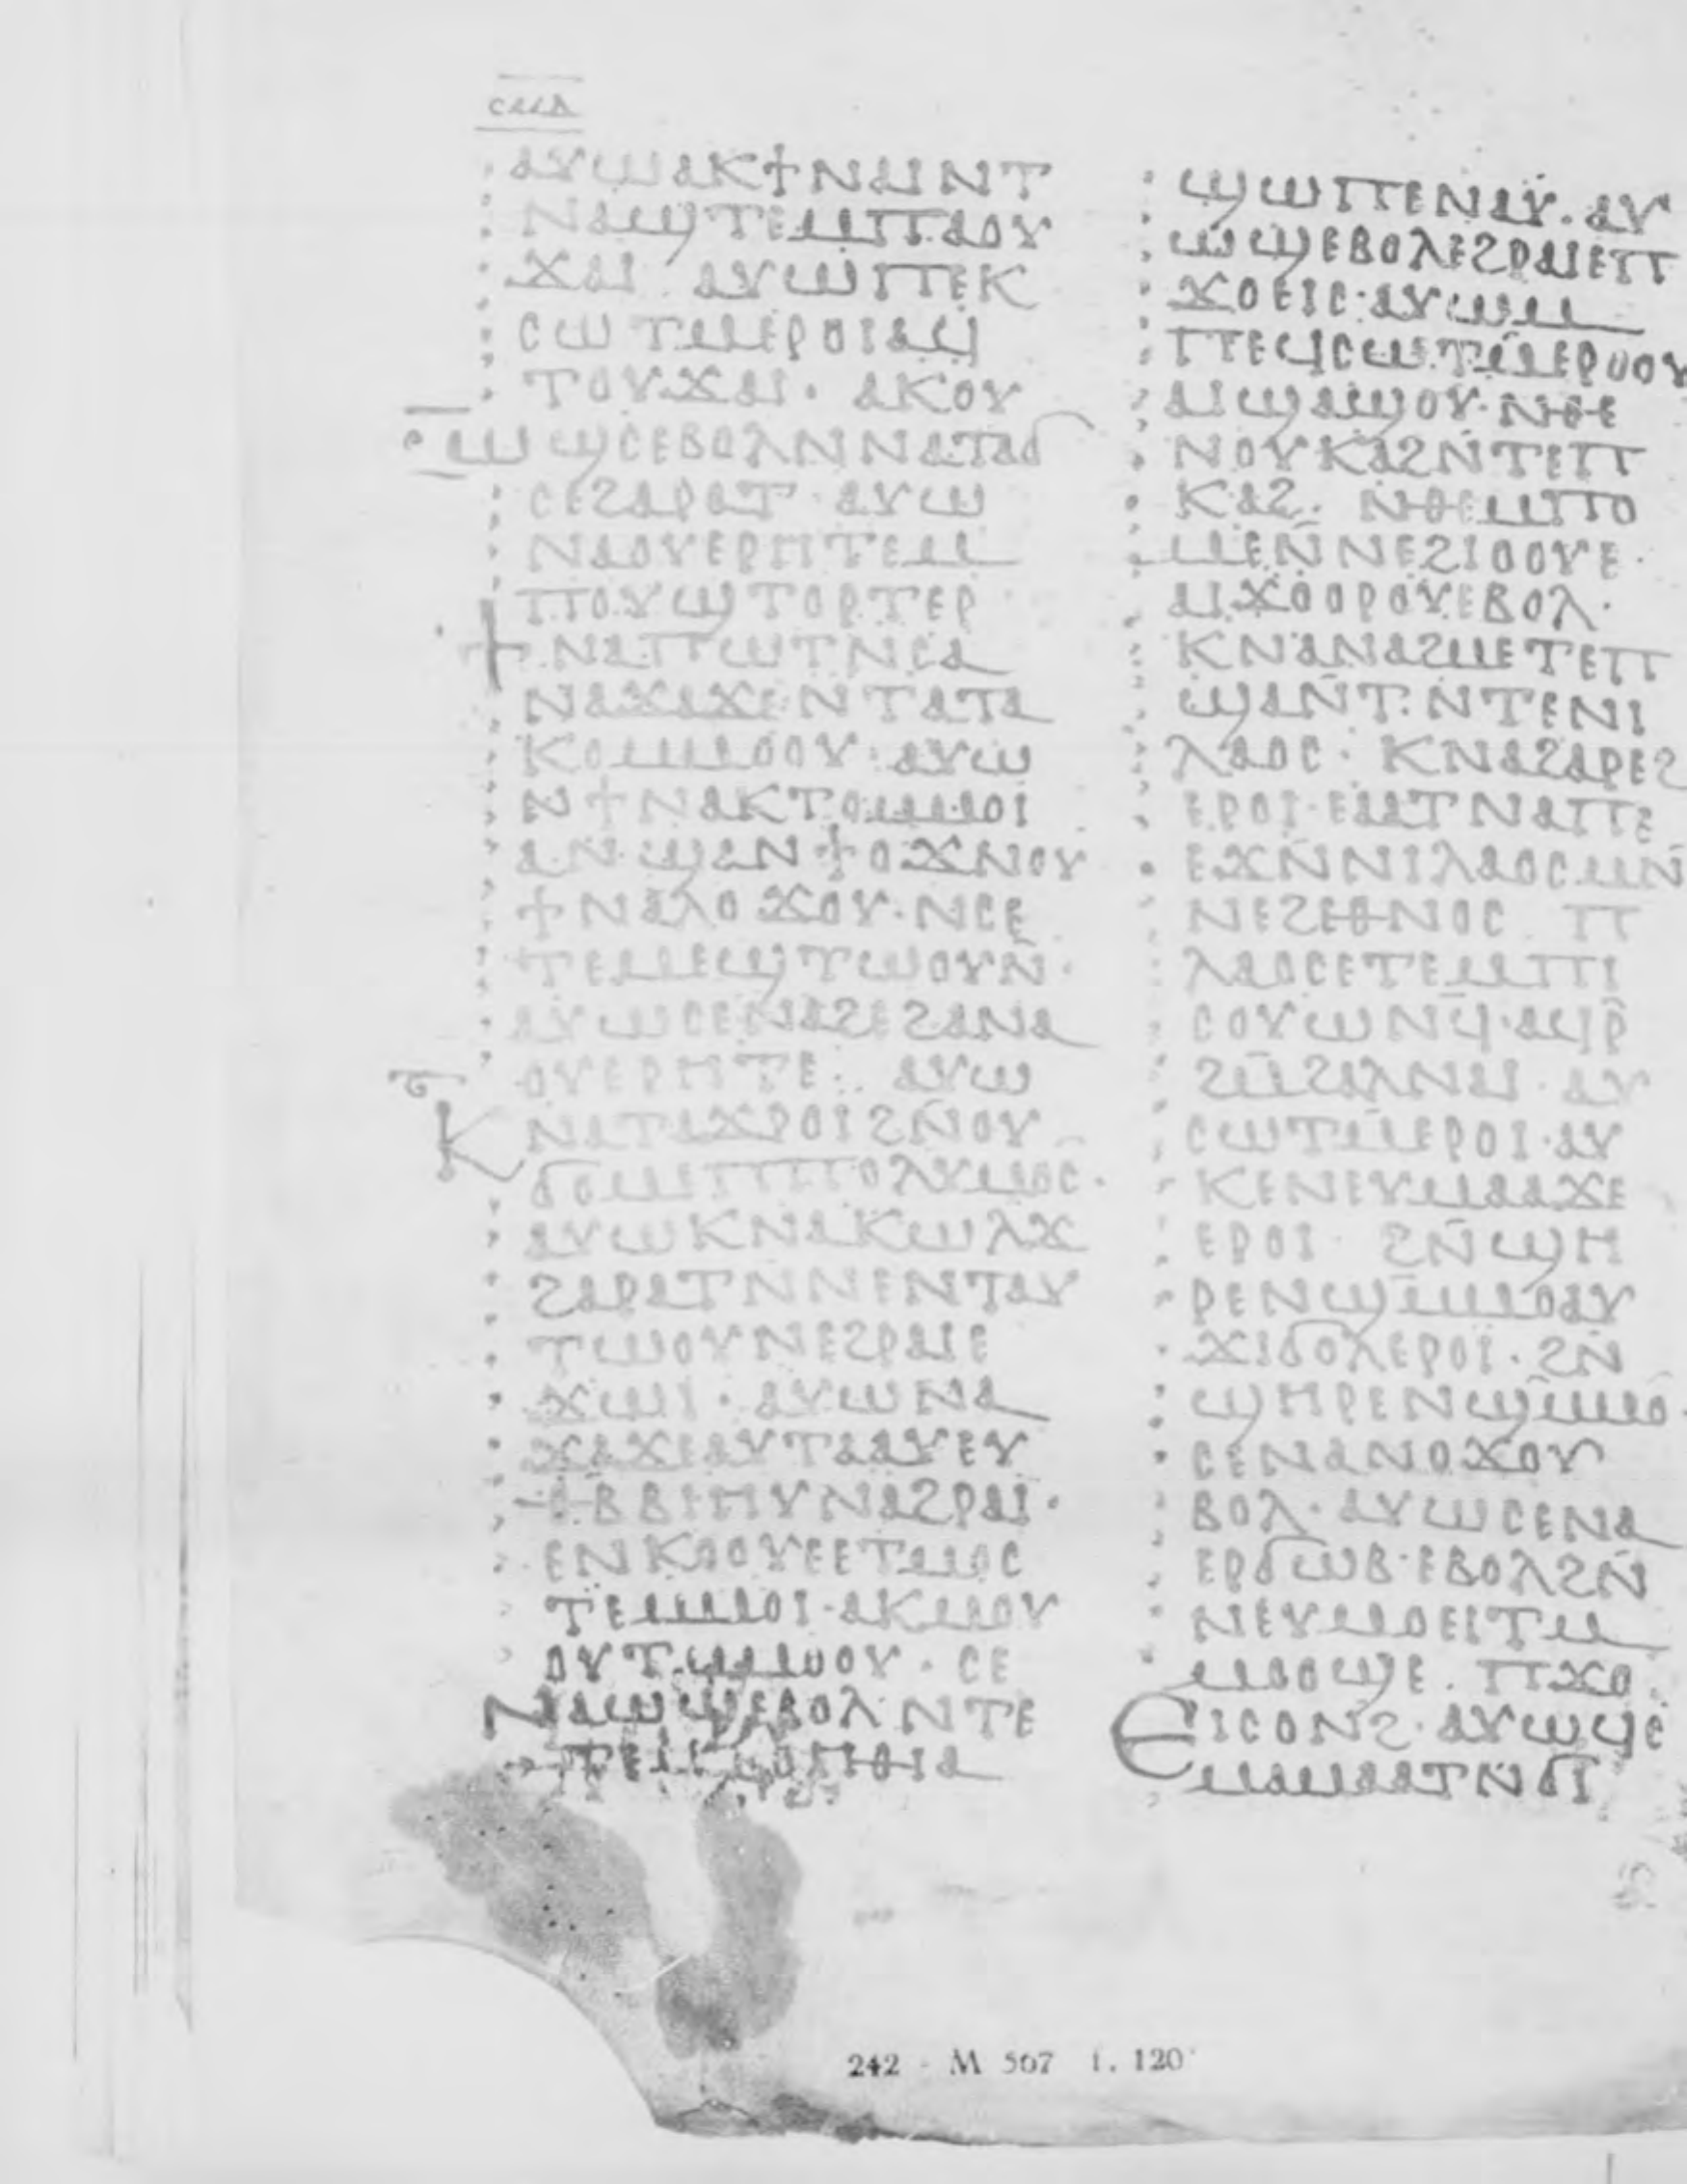 ⲥⲙⲁ
ⲁⲩⲱⲁⲕϯⲛⲁⲓⲛⲧ
ⲛⲁϣⲧⲉⲙⲡⲁⲟⲩ
ϫⲁⲓ ⲁⲩⲱⲡⲉⲕ
ⲥⲱⲧⲙⲉⲣⲟⲓⲁϥ
ⲧⲟⲩϫⲁⲓ· ⲁⲕⲟⲩ
ⲱϣⲥⲉⲃⲟⲗⲛⲛⲁⲧⲁϭ
ⲥⲉϩⲁⲣⲁⲧ ⲁⲩⲱ
ⲛⲁⲟⲩⲉⲣⲏⲧⲉⲙ
ⲡⲟⲩϣⲧⲟⲣⲧⲉⲣ
ϯⲛⲁⲡⲱⲧⲛⲥⲁ
ⲛⲁϫⲁϫⲉⲛⲧⲁⲧⲁ
ⲕⲟⲙⲙⲟⲟⲩ·ⲁⲩⲱ
ⲛϯⲛⲁⲕⲧⲟⲙⲙⲟⲓ
ⲁⲛϣⲁⲛϯⲟϫⲛⲟⲩ
ϯⲛⲁⲗⲟϫⲟⲩ·ⲛⲥⲉ
ⲧⲉⲙⲉϣⲧⲱⲟⲩⲛ̄·
ⲁⲩⲱⲥⲉⲛⲁϩⲉϩⲁⲛⲁ
ⲟⲩⲉⲣⲏⲧⲉ· ⲁⲩⲱ
ⲕⲛⲁⲧⲁϫⲣⲟⲓϩⲛ̄ⲟⲩ
ϭⲟⲙⲉⲡⲡⲟⲗⲩⲙⲟⲥ·
ⲁⲩⲱⲕⲛⲁⲕⲱⲗϫ
ϩⲁⲣⲁⲧⲛⲛⲉⲛⲧⲁⲩ
ⲧⲱⲟⲩⲛⲉϩⲣⲁⲓⲉ
ϫⲱⲓ· ⲁⲩⲱⲛⲁ
ϫⲁϫⲉⲁⲩⲧⲁⲁⲩⲉⲩ
ⲑⲃⲃⲓⲏⲩⲛⲁϩⲣⲁⲓ·
ⲉⲛⲕⲟⲟⲩⲉⲉⲧⲙⲟⲥ
ⲧⲉⲙⲙⲟⲓ·ⲁⲕⲙⲟⲩ
ⲟⲩⲧⲙⲙⲟⲟⲩ· ⲥⲉ
ⲛⲁⲱϣⲉⲃⲟⲗⲛⲧⲉ
ⲧⲉⲙⲃⲟⲏⲑⲓⲁ
ϣⲱⲡⲉⲛⲁⲩ·ⲁⲩ
ⲱϣⲉⲃⲟⲗⲉϩⲣⲁⲓⲉⲡ
ϫⲟⲉⲓⲥ·ⲁⲩⲱⲙ
ⲡⲉϥⲥⲱⲧⲙ̄ⲉⲣⲟⲟⲩ
ⲁⲓϣⲁϣⲟⲩ·ⲛⲑⲉ
ⲛⲟⲩⲕⲁϩⲛ̄ⲧⲉⲡ
ⲕⲁϩ· ⲛⲑⲉⲙⲡⲟ
ⲙⲉⲛ̄ⲛⲉϩⲓⲟⲟⲩⲉ·
ⲁⲓϫⲟⲟⲣⲟⲩⲉⲃⲟⲗ·
ⲕⲛⲁⲛⲁϩⲙⲉⲧⲉⲡ
ϣⲁⲛ̄ⲧ·ⲛⲧⲉⲛⲓ
ⲗⲁⲟⲥ· ⲕⲛⲁϩⲁⲣⲉϩ
ⲉⲣⲟⲓ·ⲉⲁⲧⲛⲁⲡⲉ
ⲉϫⲛ̄ⲛⲓⲗⲁⲟⲥⲙⲛ̄
ⲛⲉϩⲉⲑⲛⲟⲥ ⲡ
ⲗⲁⲟⲥⲉⲧⲉⲙⲡⲓ
ⲥⲟⲩⲱⲛϥ̄·ⲁϥⲣ̄
ϩⲙ̄ϩⲁⲗⲛⲁⲓ· ⲁⲩ
ⲥⲱⲧⲙ̄ⲉⲣⲟⲓ·ⲁⲩ
ⲕⲉⲛⲉⲩⲙⲁⲁϫⲉ
ⲉⲣⲟⲓ· ϩⲛ̄ϣⲏ
ⲣⲉⲛϣⲙ̄ⲙⲟⲁⲩ
ϫⲓϭⲟⲗⲉⲣⲟⲓ·ϩⲛ̄
ϣⲏⲣⲉⲛϣⲙ̄ⲙⲟ·
ⲥⲉⲛⲁⲛⲟϫⲟⲩ
ⲃⲟⲗ·ⲁⲩⲱⲥⲉⲛⲁ
ⲉⲣϭⲱⲃ·ⲉⲃⲟⲗϩⲛ̄
ⲛⲉⲩⲙⲟⲉⲓⲧⲙ
ⲙⲟⲟϣⲉ· ⲡϫⲟ
ⲉⲓⲥⲟⲛϩ·ⲁⲩⲱϥⲥ
ⲉⲙⲁⲙⲁⲁⲧⲛϭⲓ
242 - M 567 f. 120